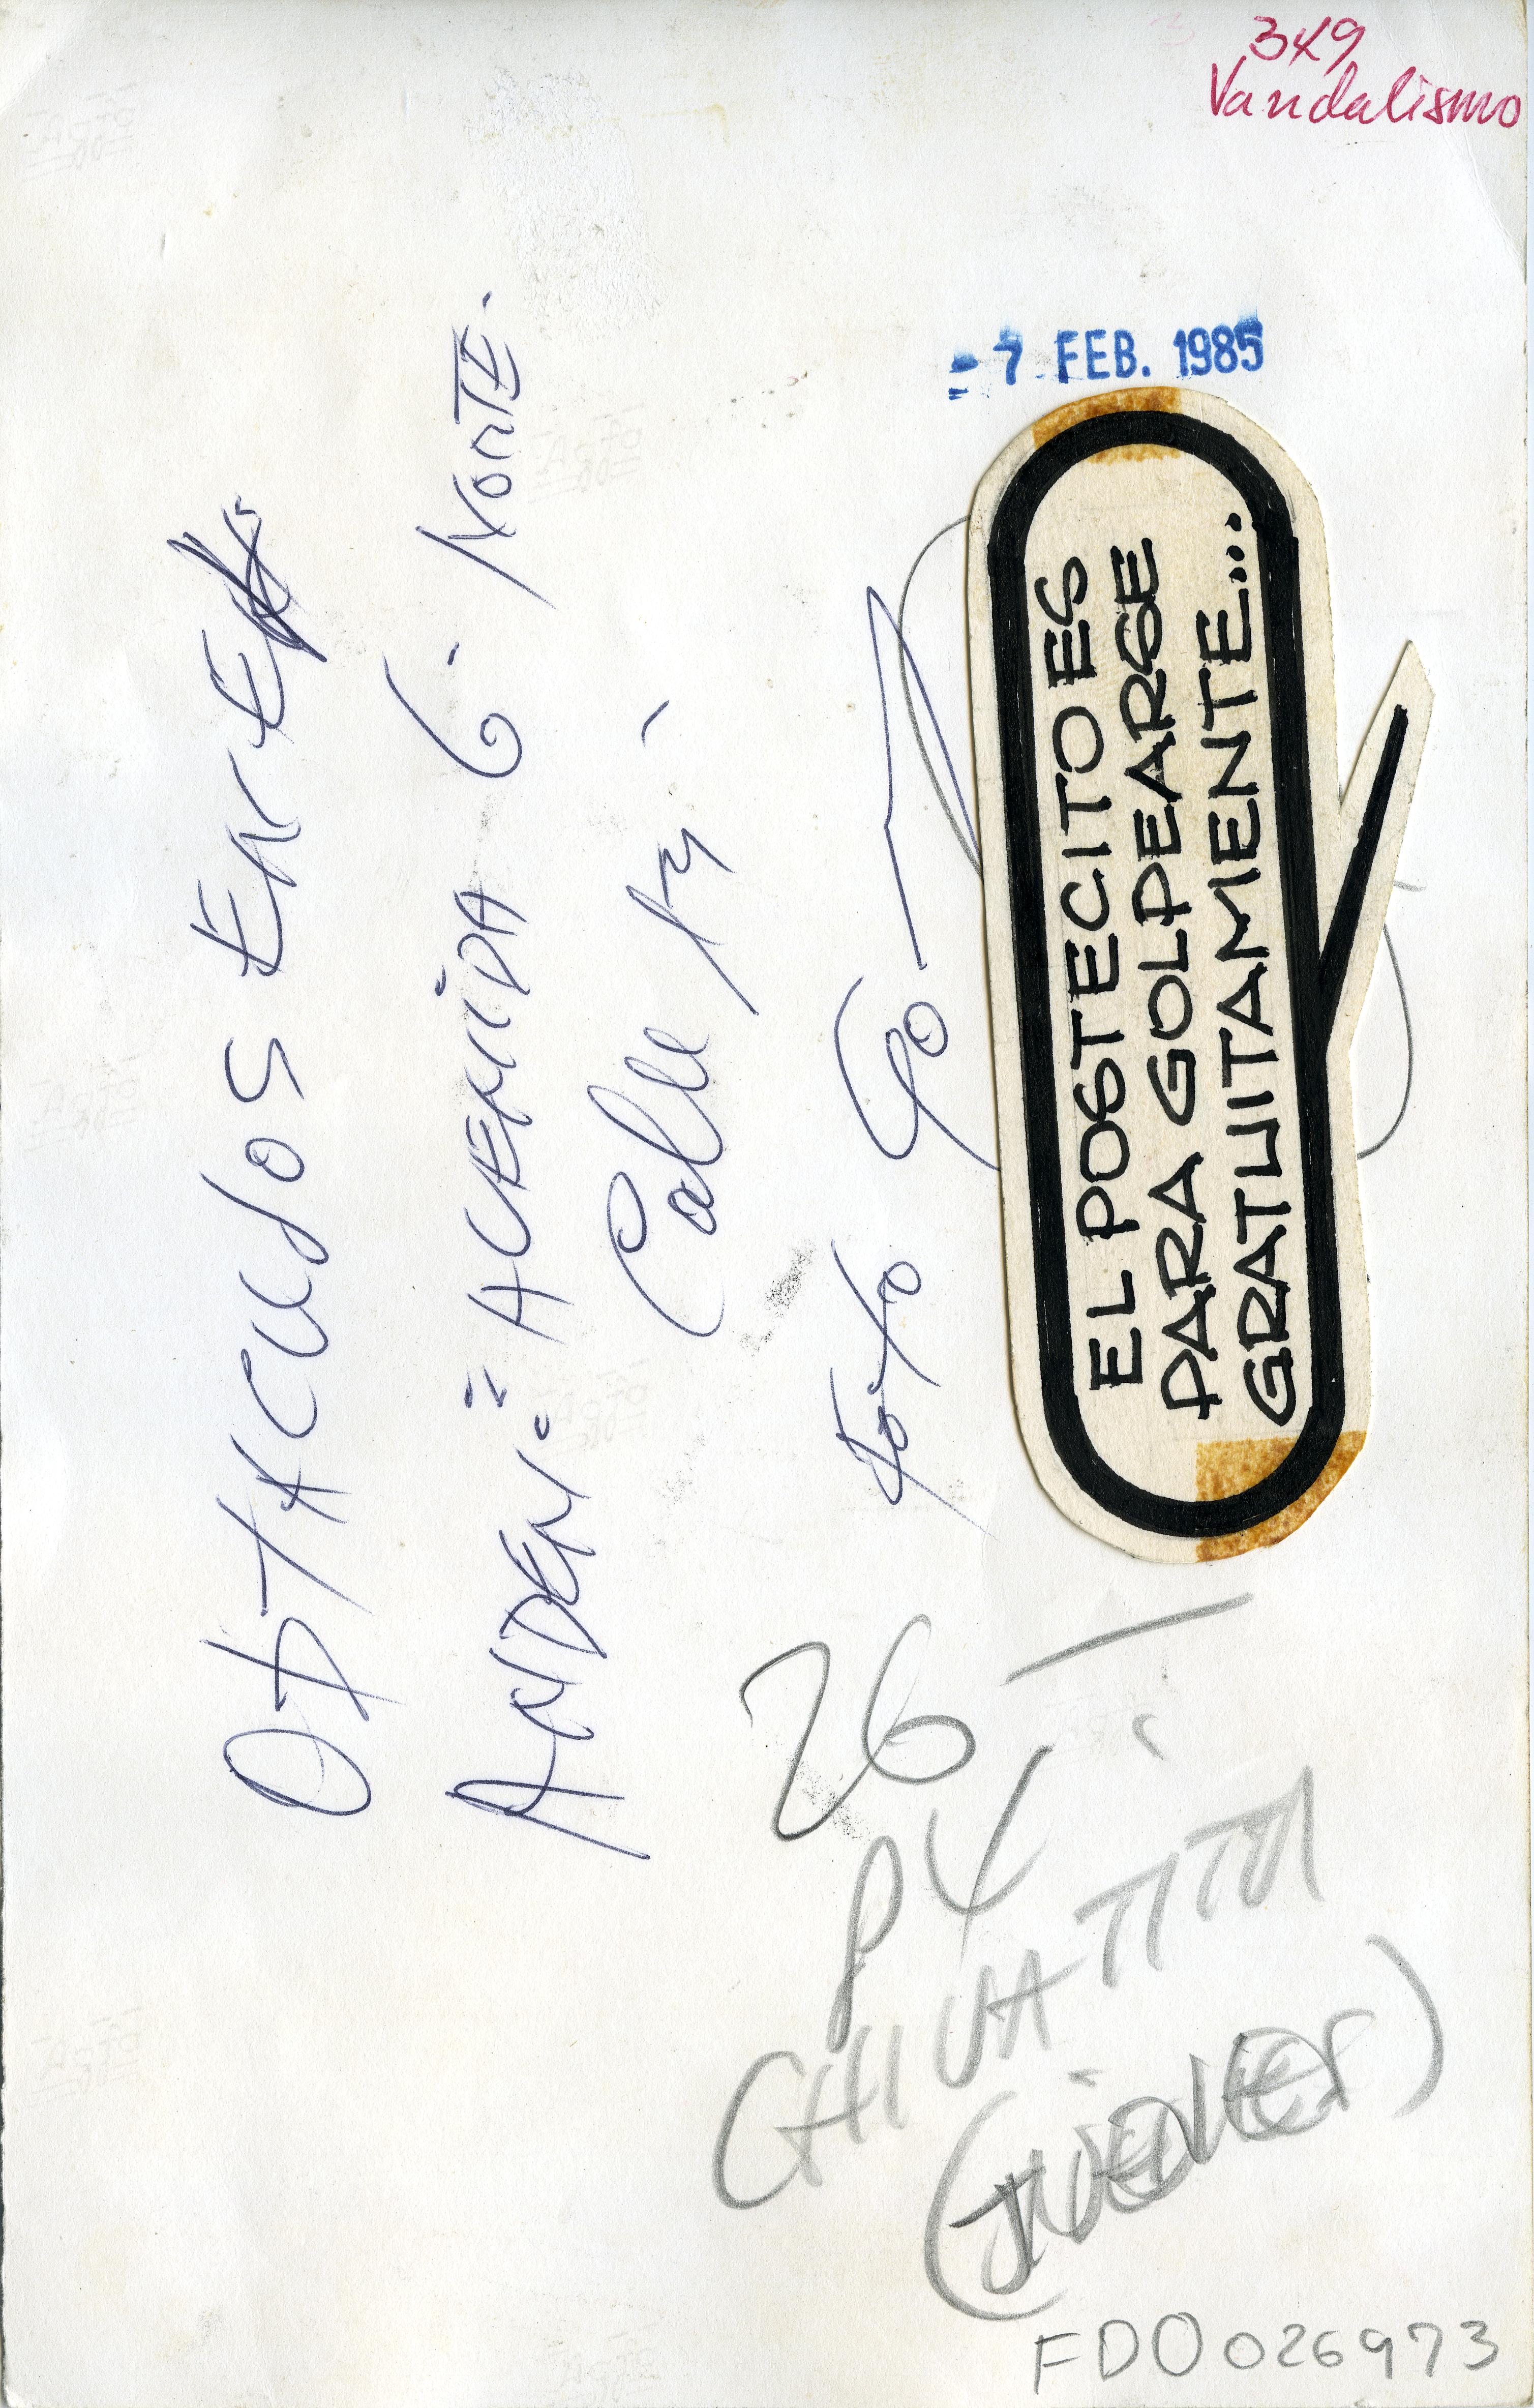 349
Vandalismo
- 7 FEB. 1985
ObSTACULOS EN EL
ANDEN: AVENIDA 6 - NORTE.
Calle 14
Foto Go
EL POSTECITO ES
PARA GOLPEARSE
GRATUITAMENTE...
26
P4
CHIVATITA
(JUEVES)
FDO026973